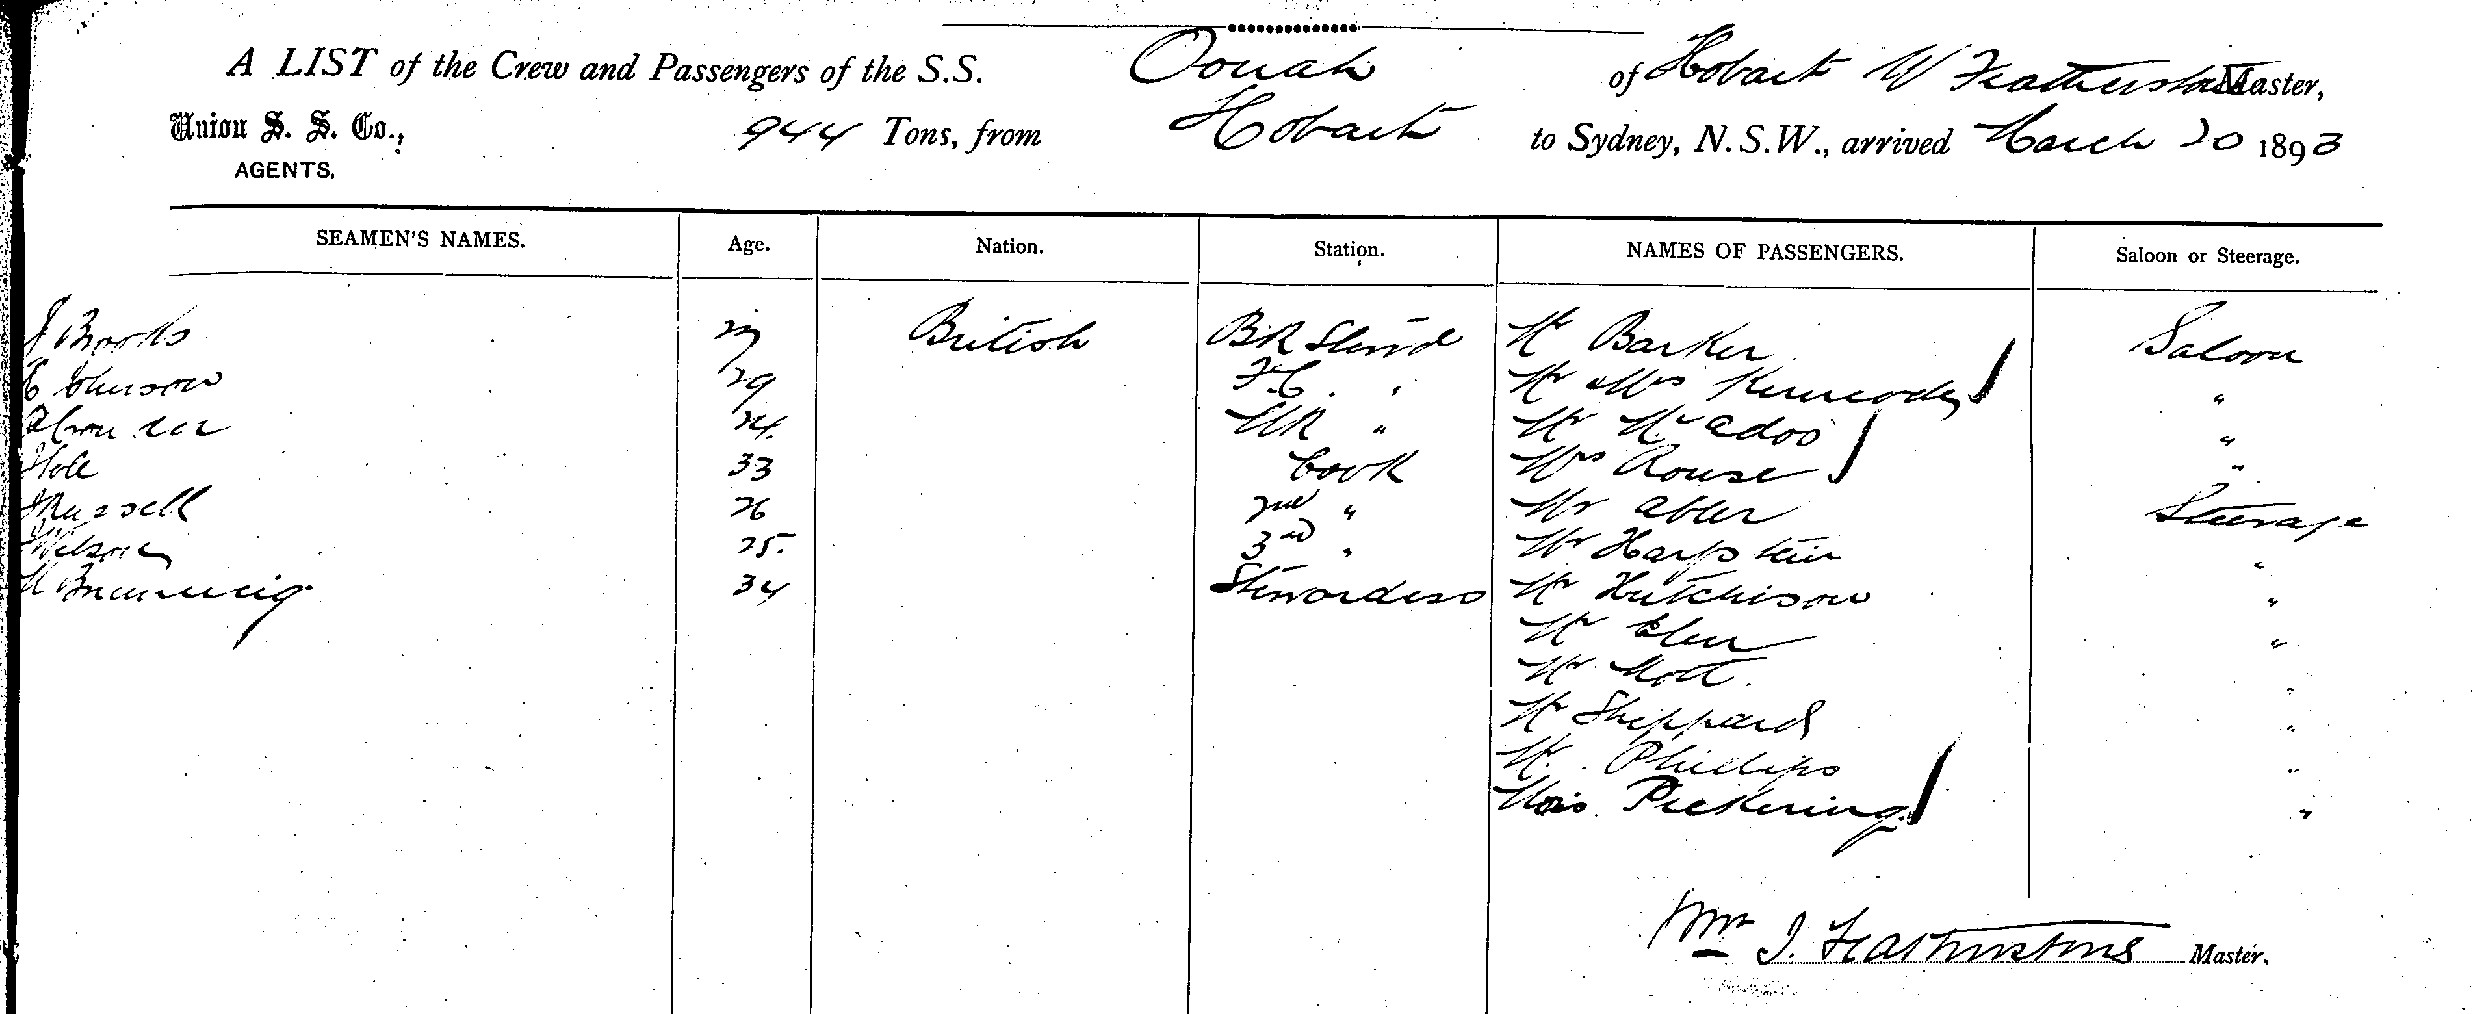 A LIST of the Crew and Passengers of the S.S. Oonah of Hobart W Featherstone Master,
Union S. S. Co., AGENTS. 944 Tons, from Hobart to Sydney, N.S.W., arrived March 20 1893
SEAMEN'S NAMES. Age. Nation. Station. NAMES OF PASSENGERS. Saloon or Steerage.
J Brooks British BR Stewd Mr Barker Saloon
Johnson 29 F.C. " Mr Mrs "
24. " Mr McAdoo "
33 Cook Mrs Rouse "
Russell 26 2nd " Mr Steerage
Wilson 25. 3rd " Mr "
34 Stewardess Mr Hutchison "
Mr "
Mr "
Mr Sheppard "
Mr. Phillips "
Pickering "
Wm J. Featherstone Master.